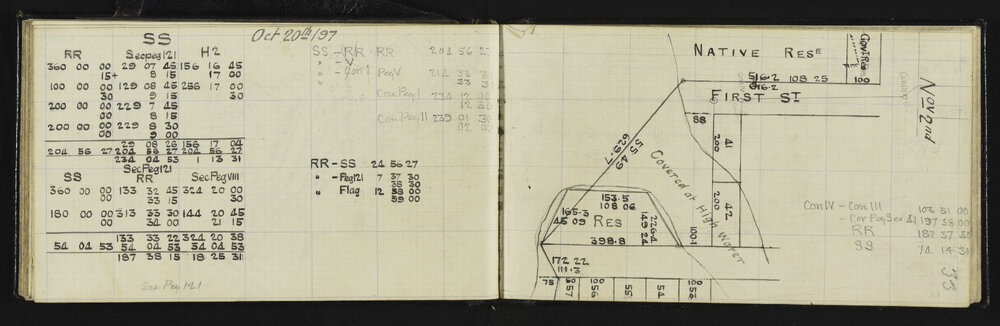 SS
Oct 20th/97
RR Sec peg 121 H2
360 00 00 29 07 45 156 16 45
15+ 8 15 17 00
100 00 00 129 08 45 256 17 00
30 9 15 30
200 00 00 229 7 45
00 8 15
200 00 00 229 8 30
00 9 00
29 08 26 156 17 04
204 56 27 204 56 27 204 56 27
234 04 53 1 13 31
Sec Peg 121
SS RR Sec Peg VIII
360 00 00 133 32 45 324 20 00
33 15 30
180 00 00 313 33 30 144 20 45
00 34 00 21 15
133 33 22 324 20 38
54 04 53 54 04 53 54 04 53
187 38 15 18 25 31
Sec Peg 121
SS - RR - RR 204 56 27
" - Con I Peg V 214
Con Peg I 234 12 00
12 30
Con Peg II 239 01 30
02 00
RR - SS 24 56 27
" - Peg 121 7 37 30
38 30
" Flag 12 58 00
59 00
NATIVE RESE
Govt Res
100
516.2 108 25
616.2
FIRST ST
88
41
200
42
200
55 49
629.7
Covered at High Water
153.5
108 06
165.3
45 09
RES
226.4
149 24
398.8
1004
172 22
111.3
75
1057
1056
55
54
1053
Nov 2nd
Con IV - Con III 103 51 00
- Cor Peg Sec 41 197 38 00
RR 187 37 30
SS 74 14 30
33